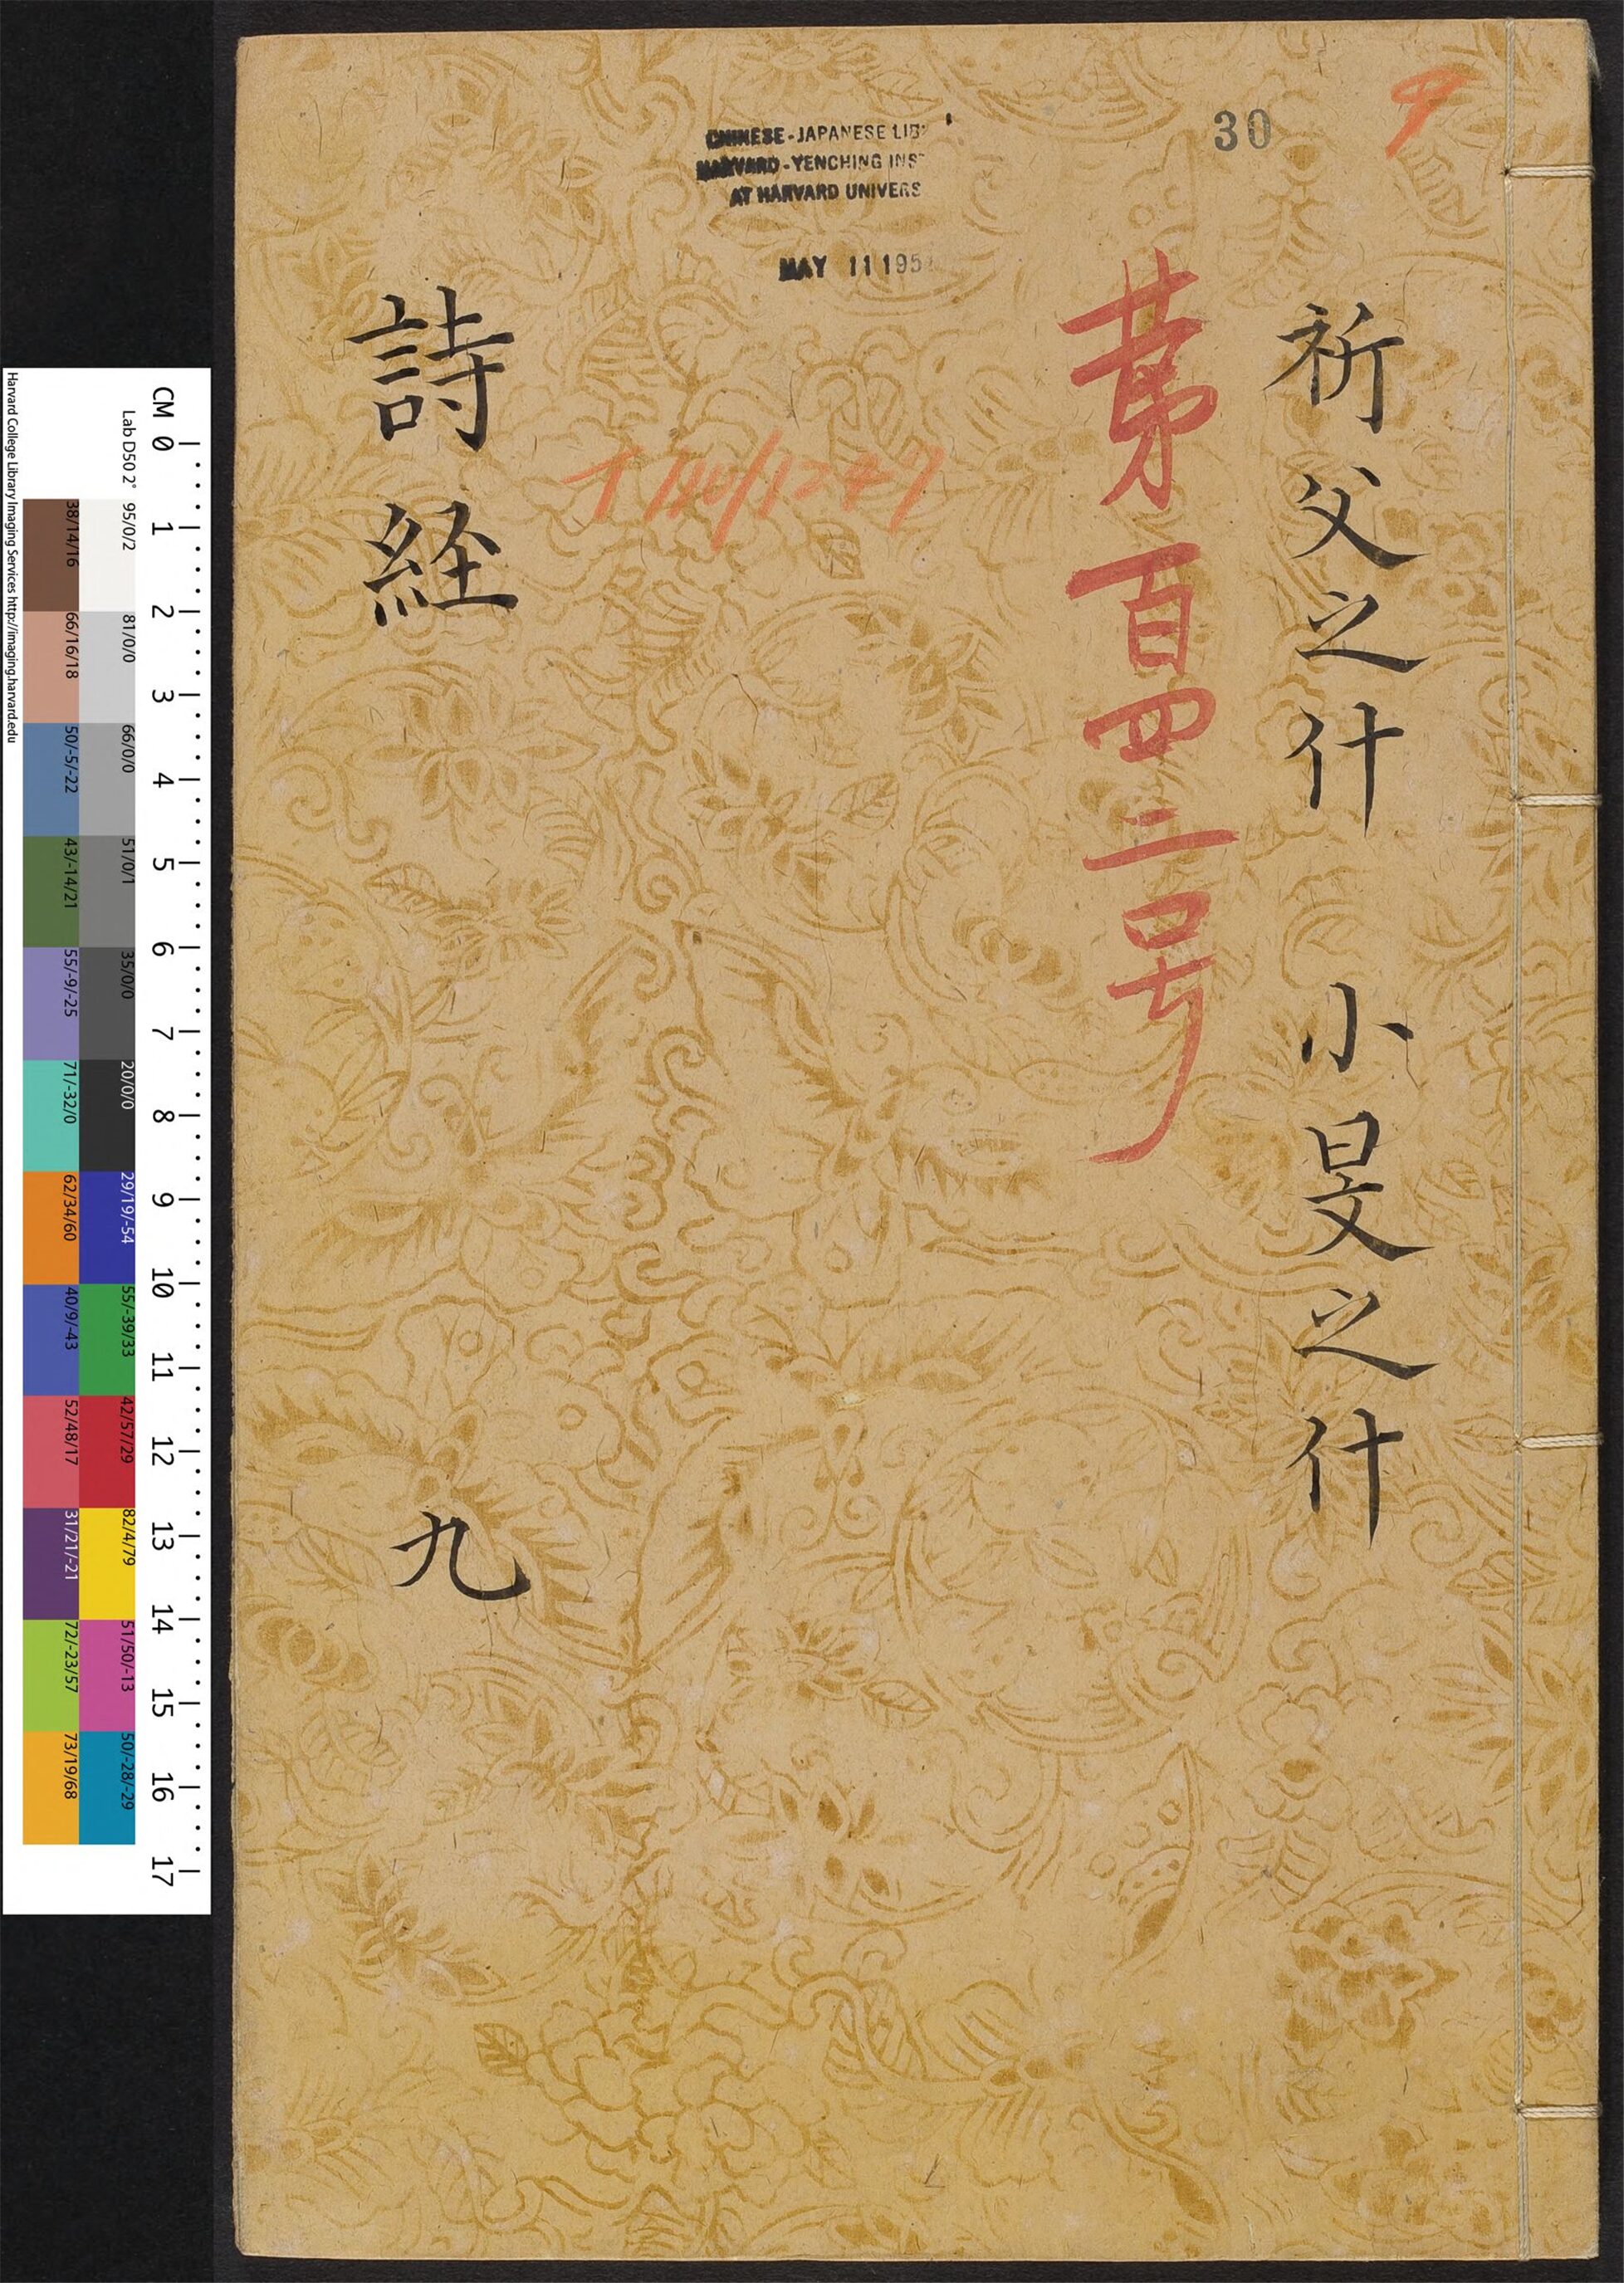 9
30
祈父之什 小旻之什
第百四二号
CHINESE-JAPANESE LIB
HARVARD-YENCHING INS
AT HARVARD UNIVERS
MAY 11 195
T 140/1247
詩経
九
CM 0 1 2 3 4 5 6 7 8 9 10 11 12 13 14 15 16 17
Lab D50 2° 95/0/2 81/0/0 66/0/0 51/0/1 35/0/0 20/0/0 29/19/-54 55/-39/33 42/57/29 82/4/79 51/50/-13 50/-28/-29
38/14/16 66/16/18 50/-5/-22 43/-14/21 55/-9/-25 71/-32/0 62/34/60 40/9/-43 52/48/17 31/21/-21 72/-23/57 73/19/68
Harvard College Library Imaging Services http://imaging.harvard.edu